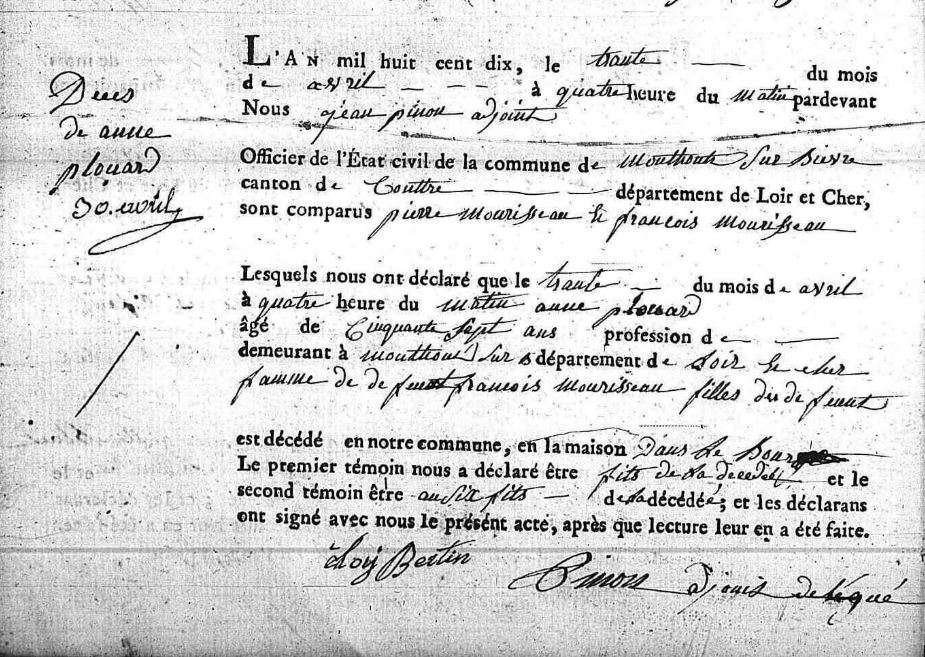 Dices
de anne
plouard
30. avril
L'AN mil huit cent dix, le trante — du mois
de avril — — — à quatre heure du matin pardevant
Nous jean pinon adjoint
Officier de l'État civil de la commune de Mouthout sur Bievre
canton de Conttre — — département de Loir et Cher,
sont comparus pierre mourisseau & francois mourisseau
Lesquels nous ont déclaré que le trante — du mois de avril
à quatre heure du matin anne plouard
âgé de Cinquante sept ans profession de —
demeurant à mouthout sur s département de Loir & cher
famme de de feunt francois mourisseau filles du de feunt
est décédé en notre commune, en la maison Dans le Bourg
Le premier témoin nous a déclaré être fits de la et le
second témoin être ausix fits — de la décédéé; et les déclarans
ont signé avec nous le présent acte, après que lecture leur en a été faite.
Eloy Bertin
Pinon adjouis